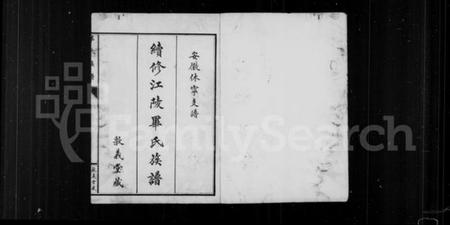 安徽休寧支譜
續修江陵畢氏族譜
敦義堂藏
FamilySearch